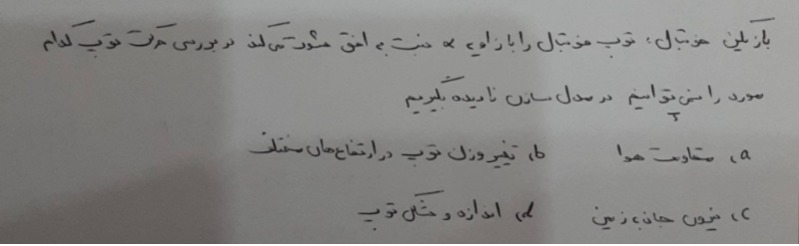 بازیکن فوتبال، توپ فوتبال را با زاویه α نسبت به افق شوت می‌کند در بررسی حرکت توپ کدام
مورد را نمی‌توانیم در مدل سازی نادیده بگیریم
a) مقاومت هوا b) تغییر وزن توپ در ارتفاع‌های مختلف
c) نیروی جاذبه زمین d) اندازه و شکل توپ